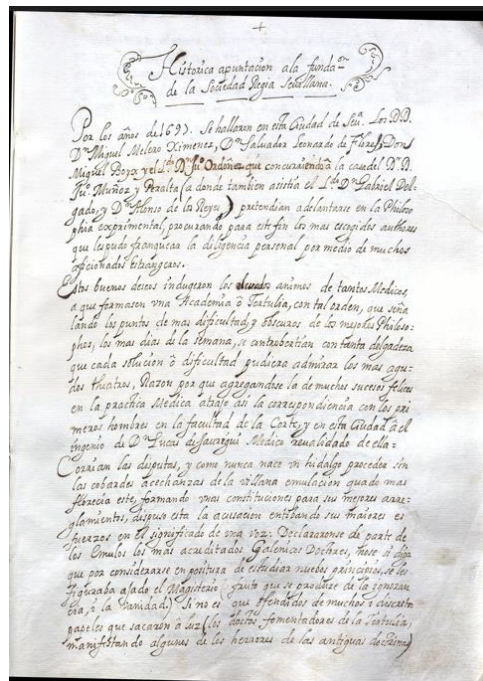 +
Historica apuntacion ala funda.on
de la Sociedad Regia Sevillana.
Por los años de 1697. Se hallaron en esta Ciudad de Sev.a Los D.D.
D.n Miguel Melero Ximenez, D.n Salvador Leonardo de Flores, Don
Miguel Boyx, y el L.do D.n Ju.o Ordoñez que concurriendo a la casa del D.r D.
Ju.o Muñoz y Peralta (a donde tambien asistia el L.do D.n Gabriel Del-
gado, y D.n Alonso de los Reyes,) pretendian adelantarse en la Philoso
phia experimental, procurando para este fin los mas escogidos authores
que les pudo franquear la diligencia personal por medio de muchos
aficionados estrangeros.
Estos buenos deseos indugeron los animos de tantos Medicos,
a que formasen vna Academia ô Tertulia, con tal orden, que seña
lando los puntos de mas dificultad, y obscuros de los mejores Philoso-
phos, los mas dias de la semana, se controbertian con tanta delgadeza
que cada solucion ô dificultad pudiera admirar los mas agu-
dos theatros, Razon por que agregandose la de muchos sucesos felices
en la practica Medica atrajo asi la correspondencia con los pri
meros hombres en la facultad de la Corte, y en esta Ciudad a el
ingenio de D.n Lucas de Jauregui Medico revalidado de ella:
Corrian las disputas, y como nunca nace vn hidalgo proceder sin
las cobardes acechanzas de la villana emulacion quando mas
florecia este, formando vnas constituciones para sus mejores arre-
glamientos, dispuso esta la acusacion entibando sus maiores es
fuerzos en el significado de vna voz: Declararonse de parte de
los Emulos los mas acreditados Galenicos Doctores, nose si diga
que por considerarse en positura de estudiar nuebos principios, se les
figuraba ajado el Magisterio (fruto que se produce de la ignoran
cia, ô la vanidad.) Si no es que ofendidos de muchos i discretos
papeles que sacaron â luz (los doctos fomentadores de la Tertulia,
manifestando algunos de los herrores de las antiguas doctrinas)